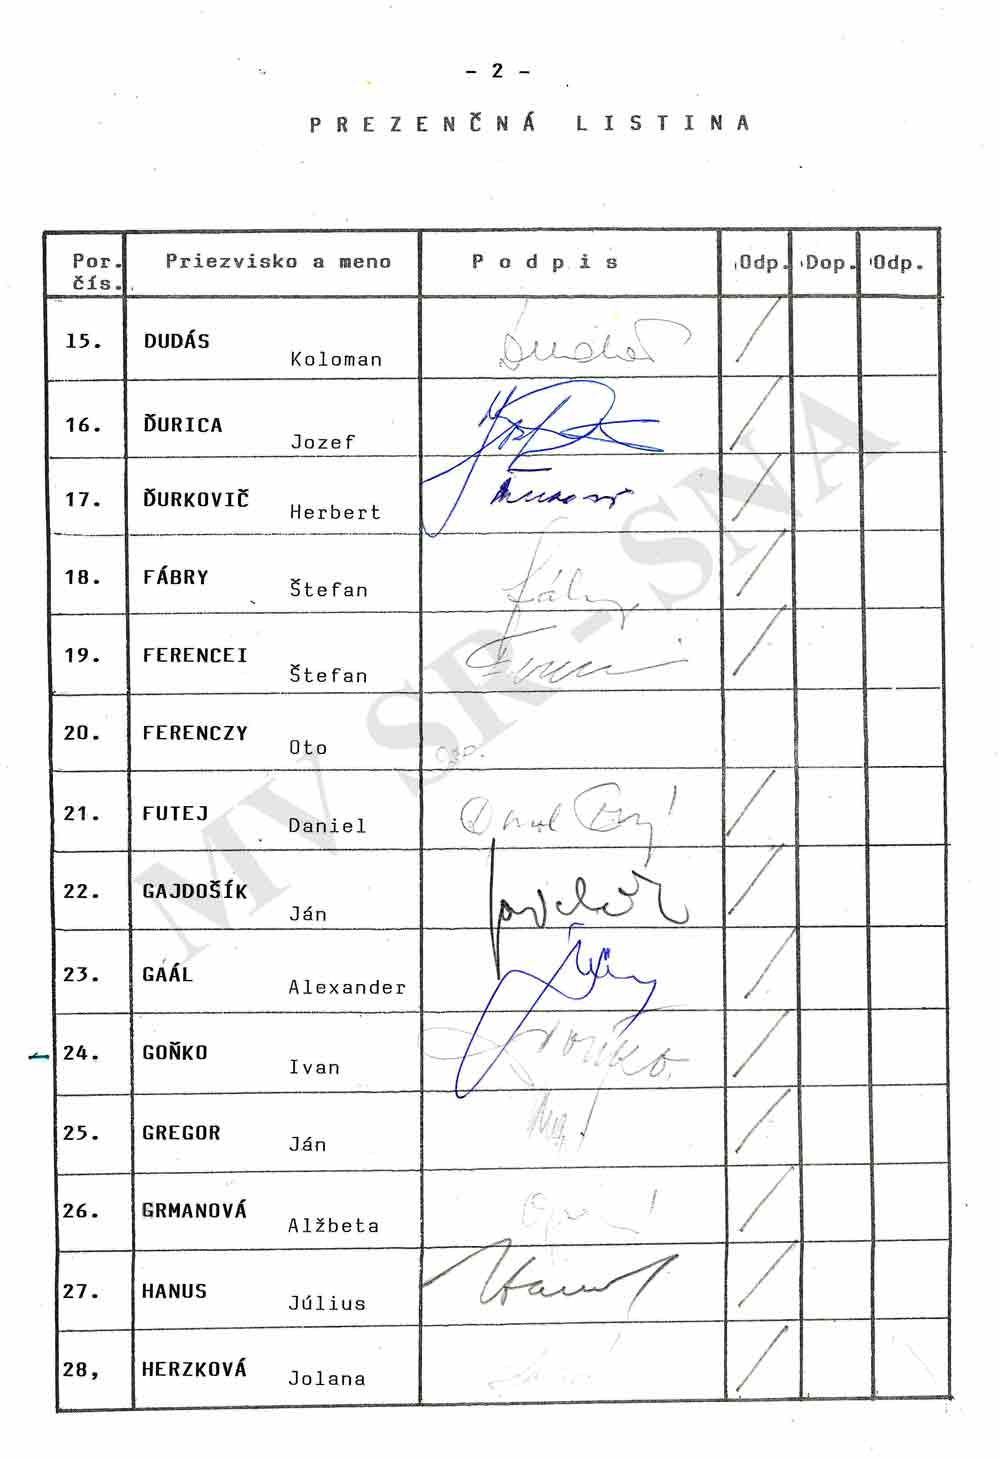 - 2 -
PREZENČNÁ LISTINA
Por. čís. Priezvisko a meno Podpis Odp. Dop. Odp.
15. DUDÁS Koloman
16. ĎURICA Jozef
17. ĎURKOVIČ Herbert
18. FÁBRY Štefan
19. FERENCEI Štefan
20. FERENCZY Oto
21. FUTEJ Daniel
22. GAJDOŠÍK Ján
23. GAÁL Alexander
24. GOŇKO Ivan
25. GREGOR Ján
26. GRMANOVÁ Alžbeta
27. HANUS Július
28, HERZKOVÁ Jolana
MV SR - SNA